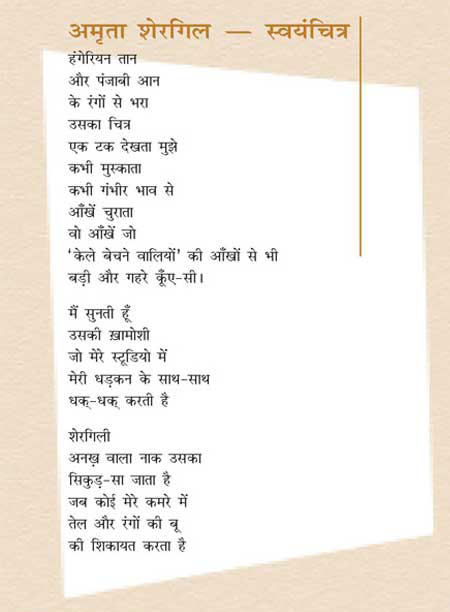 अमृता शेरगिल — स्वयंचित्र
हंगेरियन तान
और पंजाबी आन
के रंगों से भरा
उसका चित्र
एक टक देखता मुझे
कभी मुस्काता
कभी गंभीर भाव से
आँखें चुराता
वो आँखें जो
‘केले बेचने वालियों’ की आँखों से भी
बड़ी और गहरे कूँए-सी।
मैं सुनती हूँ
उसकी ख़ामोशी
जो मेरे स्टूडियो में
मेरी धड़कन के साथ-साथ
धक्-धक् करती है
शेरगिली
अनख़ वाला नाक उसका
सिकुड़-सा जाता है
जब कोई मेरे कमरे में
तेल और रंगों की बू
की शिकायत करता है